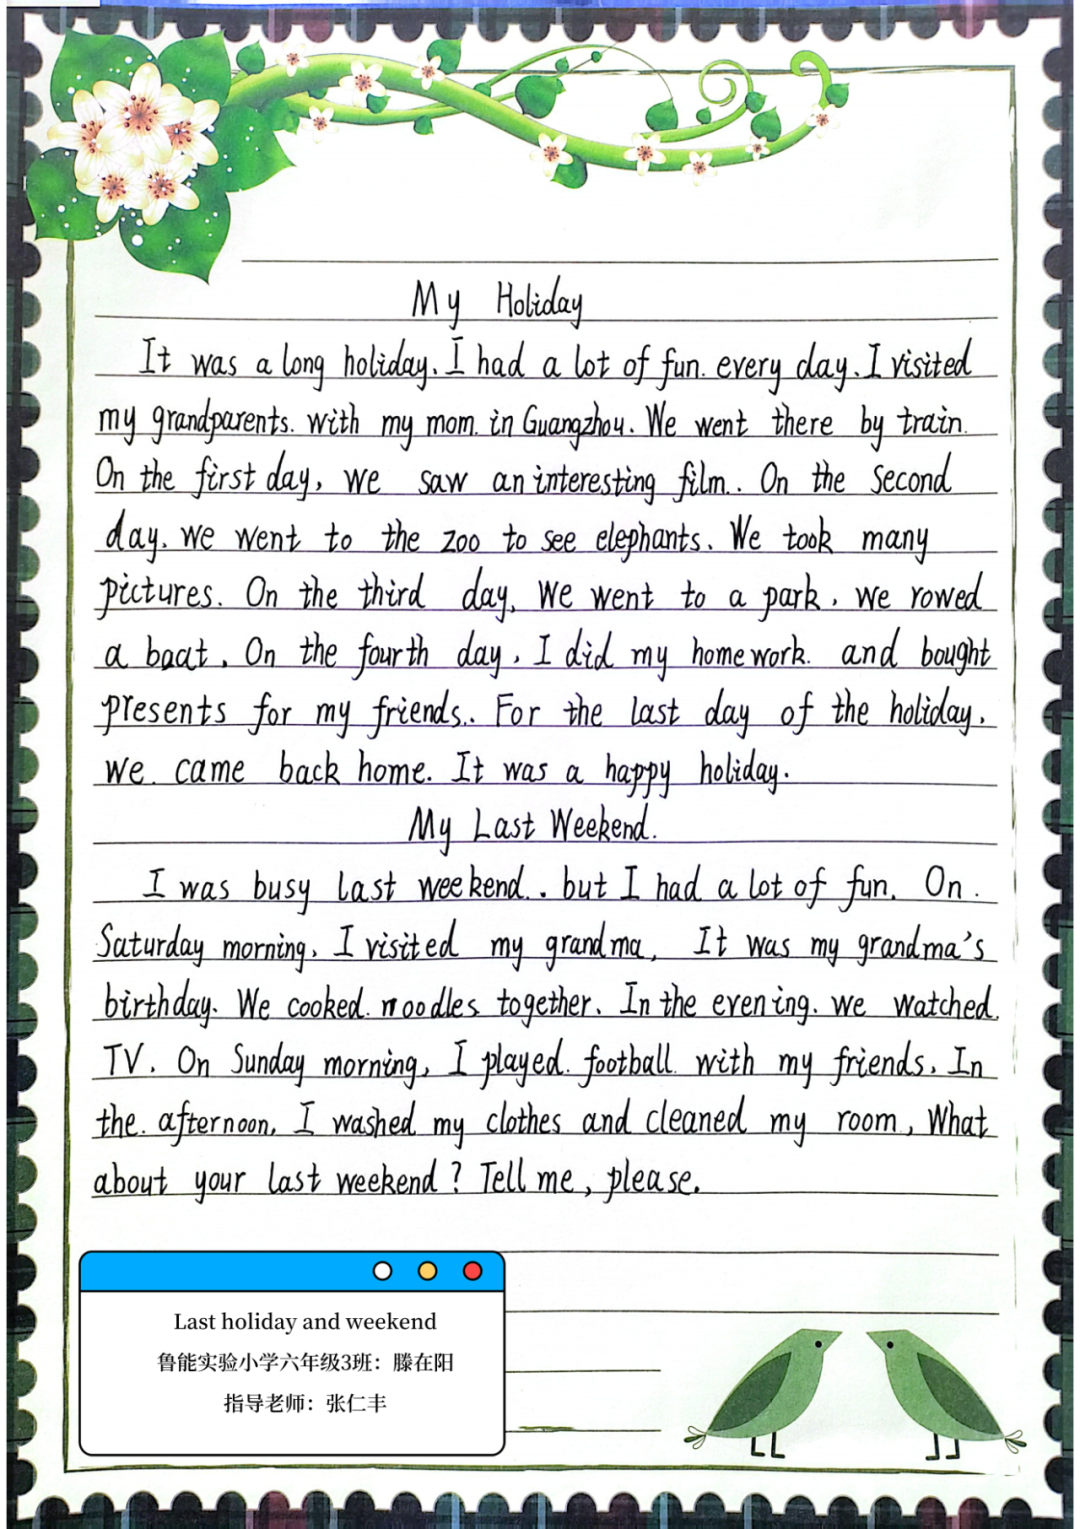 My Holiday
It was a long holiday. I had a lot of fun. every day. I visited
my grandparents. with my mom. in Guangzhou. We went there by train.
On the first day, we saw an interesting film.. On the second
day. we went to the zoo to see elephants. We took many
pictures. On the third day, we went to a park. we rowed
a boat. On the fourth day, I did my homework. and bought
presents for my friends.. For the last day of the holiday.
we. came back home. It was a happy holiday.
My Last Weekend.
I was busy last weekend.. but I had a lot of fun. On.
Saturday morning, I visited my grandma, It was my grandma's
birthday. We cooked. noodles together. In the evening. we watched.
TV. On Sunday morning, I played. football. with my friends. In
the. afternoon, I washed my clothes and cleaned my room, What
about your last weekend? Tell me, please.
Last holiday and weekend
鲁能实验小学六年级3班：滕在阳
指导老师：张仁丰